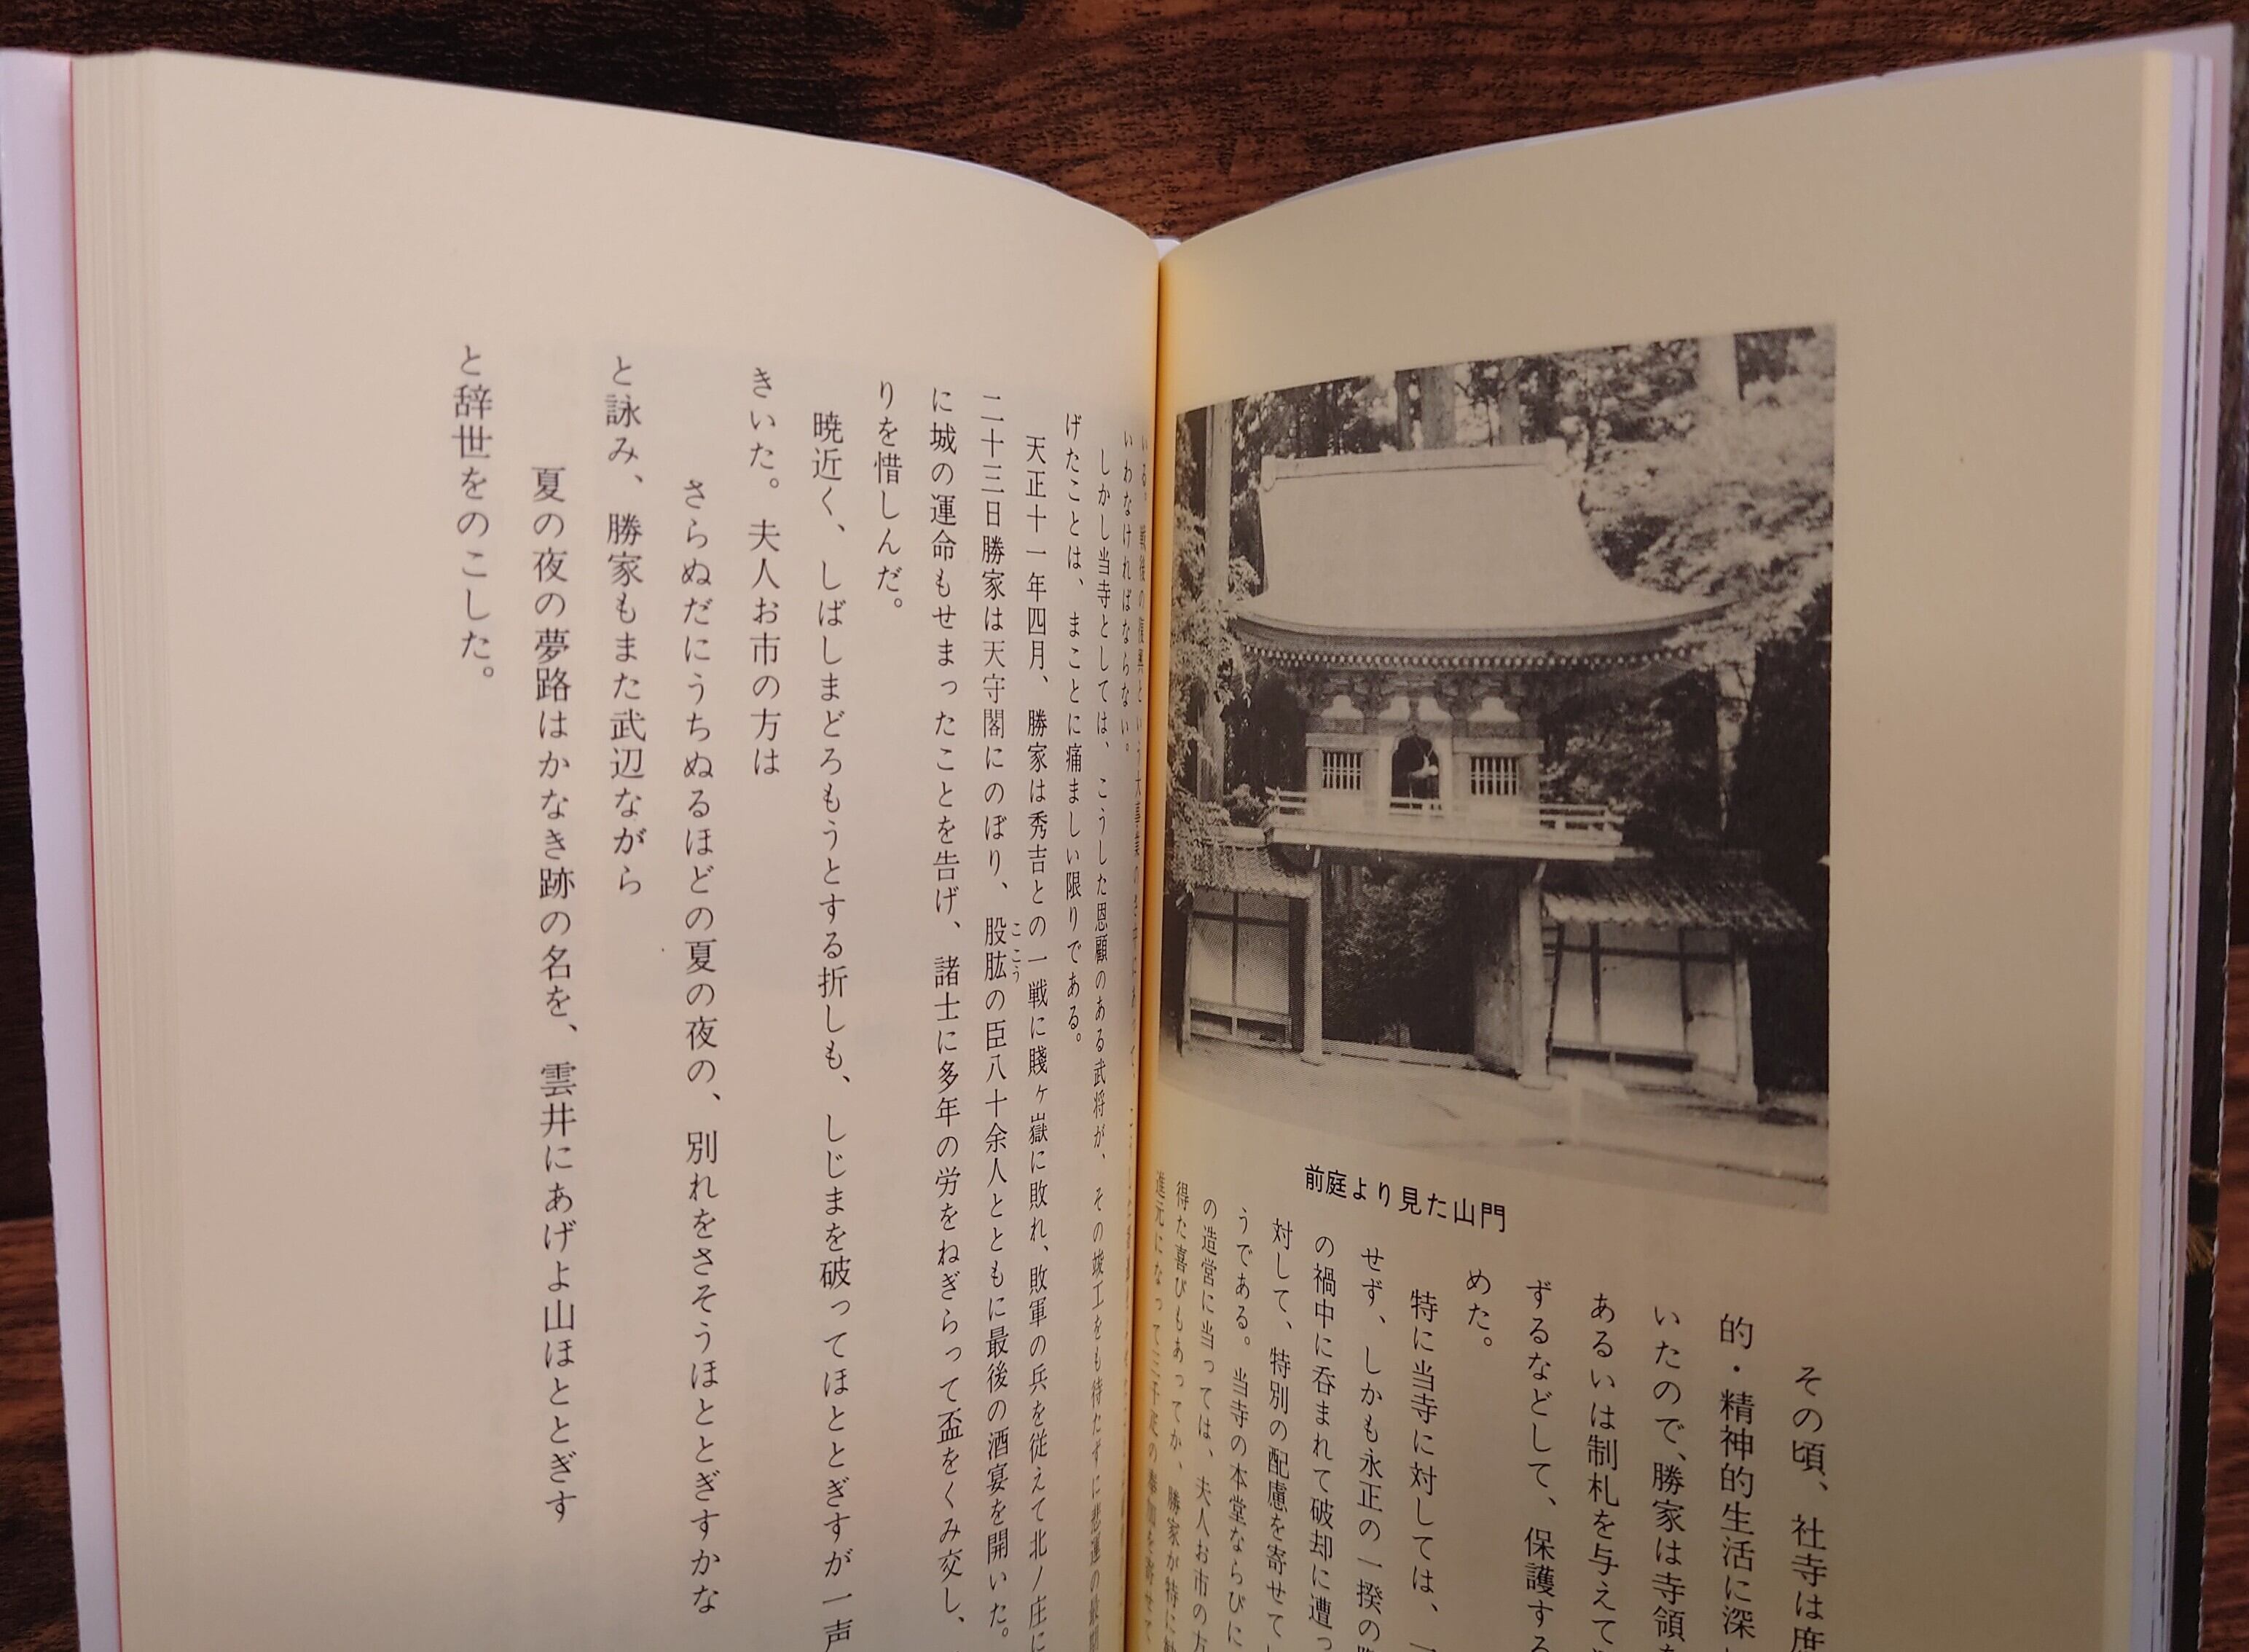 その頃、社寺は
的・精神的生活に深
いたので、勝家は寺領
あるいは制札を与えて
ずるなどして、保護する
めた。
特に当寺に対しては、一
せず、しかも永正の一揆の
の禍中に呑まれて破却に遭っ
対して、特別の配慮を寄せて
うである。当寺の本堂ならびに
の造営に当っては、夫人お市の方
得た喜びもあってか、勝家が特に
進元になって三千疋の奉加を寄せて
前庭より見た山門
いる。戦後の復興という大事業の
いわなければならない。
しかし当寺としては、こうした恩顧のある武将が、その竣工をも待たずに悲運の最期
げたことは、まことに痛ましい限りである。
天正十一年四月、勝家は秀吉との一戦に賤ヶ嶽に敗れ、敗軍の兵を従えて北ノ庄に
二十三日勝家は天守閣にのぼり、股肱の臣八十余人とともに最後の酒宴を開いた。
ここう
に城の運命もせまったことを告げ、諸士に多年の労をねぎらって盃をくみ交し、
りを惜しんだ。
暁近く、しばしまどろもうとする折しも、しじまを破ってほととぎすが一声
きいた。夫人お市の方は
さらぬだにうちぬるほどの夏の夜の、別れをさそうほととぎすかな
と詠み、勝家もまた武辺ながら
夏の夜の夢路はかなき跡の名を、雲井にあげよ山ほととぎす
と辞世をのこした。